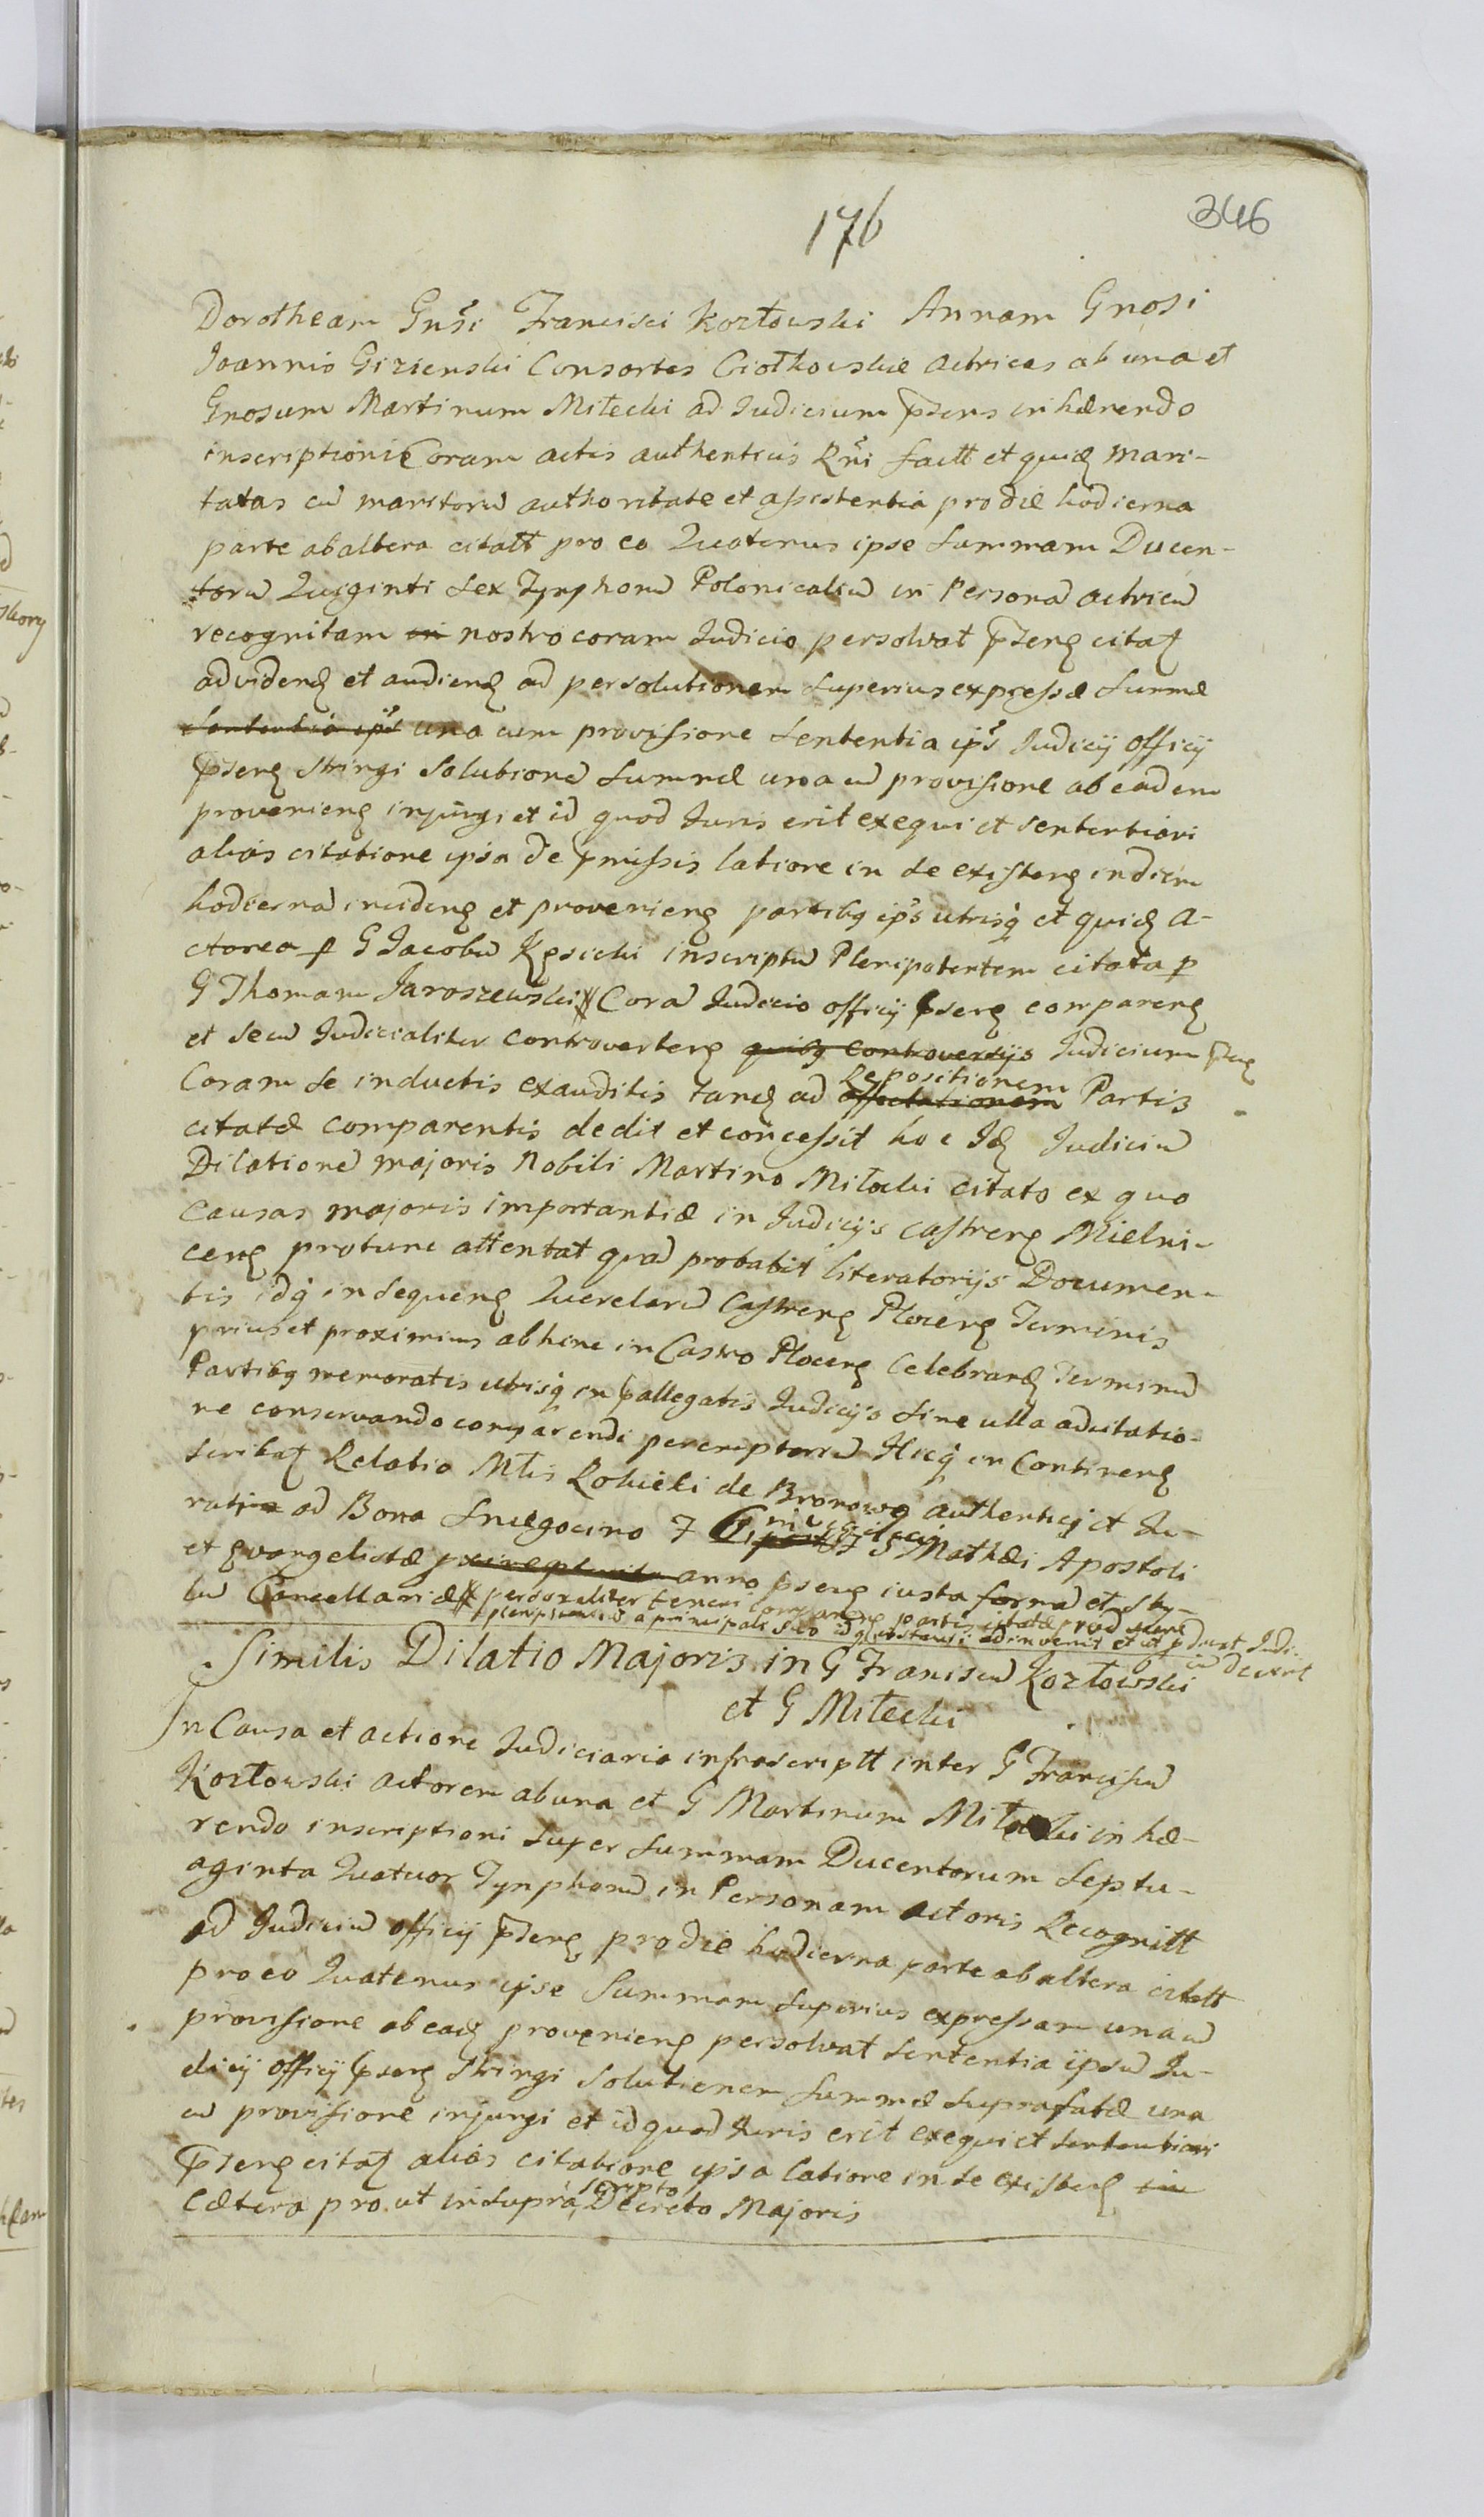 176
346
Dorotheam Gnsi Francisci Kozłowski Annam Gnosi
Joannis Gizienski Consortes Ciołkowskie actrices ab una et
Gnosum Martinum Miłecki ad Judicium pñtens inhærendo
inscriptioni Coram actis authenticis Rñi factt et quidē mari-
tatas cū maritorū authoritate et assistentia pro die hodierna
parte ab altera citatt pro eo Quatenus ipse summam Ducen-
torū Quiginti sex Tynphorū Polonicaliū in Persona actricū
recognitam in nostro coram Judicio persolvat pñtens citat
ad videnđ et audienđ ad persolutionem superius expressæ summæ
sententia ips una cum provisione sententia ips Judicij officij
pñtens stringi solutionē summæ una cū provisione ab eadem
provenienṡ injungi et id quod Juris erit exequi et sententiari
alias citatione ipsa de pmissis latiore in se existenṡ in diem
hodiernā incidenṡ et provenienṡ partibq ips utrisq et quidē A-
ctorea p G Jacobū Kęsicki inscriptū Plenipotentem citata p
G Thomam Jaroszewski Corā Judicio officij pserṡ comparenṡ
et secū Judicialiter controvertenṡ quibq controversijs Judicium pserṡ
Coram se inductis exauditis tandē ad affectationem Repositionem Partis
citatæ comparentis dedit et concessit hoc Idē Judiciū
Dilationē majoris Nobili Martino Miłecki citato ex quo
Causas majoris importantiæ in Judicijs castrenṡ Mielni-
cenṡ protunc attentat quā probabit literatorijs Documen-
tis idq in sequenṡ Querelarū Castrenṡ Plocenṡ Terminis
prius et proximius abhinc in Castro Plocenṡ Celebranđ Terminū
Partibq memoratis utrisq in pallegatis Judicijs sine ulla adcitatio-
ne conservando comparendi peremptoriū Hicq in Continenṡ
scribat Relatio Mtis Rokicki de Bronowo authentici et Ju-
rati ad Bona Sniegocino F S Mathæi Apostoli
et Evangelistæ anno pserṡ iuxta formā et sty-
lū Cancellariæ personaliter teneri comparenṡ partis citatæ producere
a principali suo idq adinvenit et ut pducat Judi-
ciū decrevit
Similis Dilatio Majoris in G Franciscū Kozłowski
et G Miłecki
In Causa et actione Judiciaria infrascriptt inter G Franciscū
Kozłowski actorem ab una et G Martinum Miłecki in hæ-
rendo inscriptioni super summam Ducentorum Septu-
aginta Quatuor Tynphorū in Personam actoris Recognitt
ad Judiciū officij pserṡ pro die hodierna parte ab altera citatt
pro eo Quatenus ipse Summam superius expressam una cū
provisione ab eadē provenienṡ persolvat sententia ipsū Ju-
dicij officij pserṡ stringi solutionem summæ suprafatæ una
cū provisione injungi et id quod Juris erit exequi et sententiari
pserṡ citat alias citatione ipsa latiore in se existenṡ in
Cætera pro ut in supra scripto Decreto Majoris